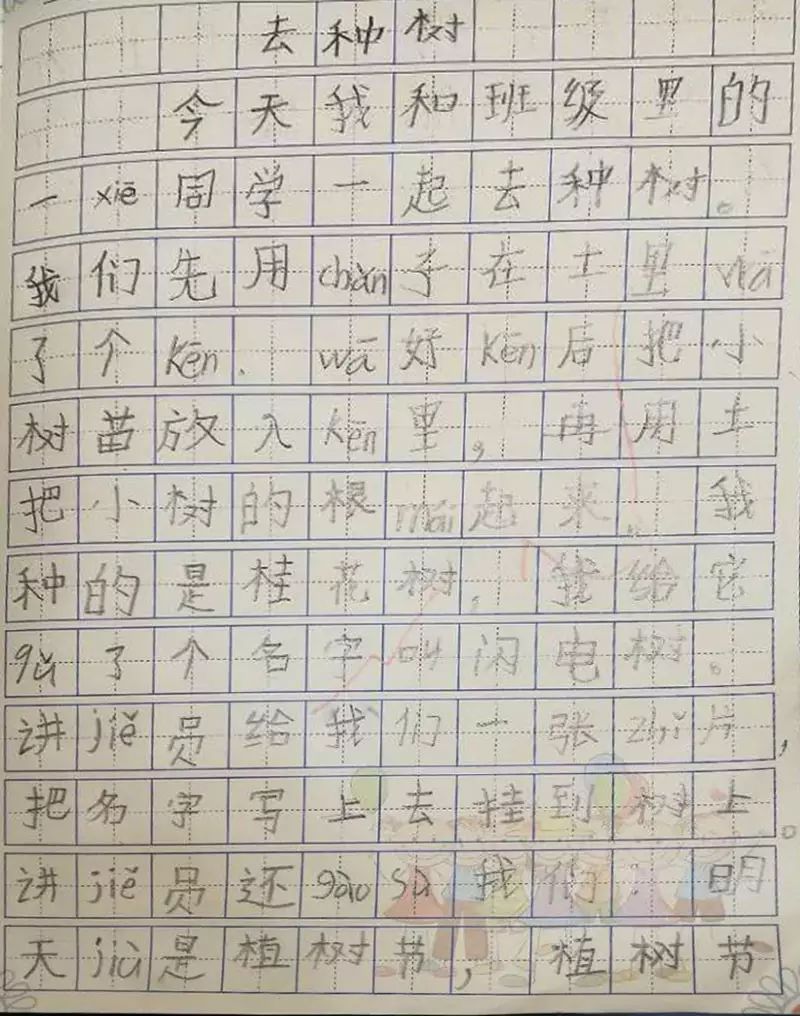 去种树
今天我和班级里的
一xiē同学一起去种树。
我们先用chǎn子在土里wā
了个kēn.wā好kēn后把小
树苗放入kēn里,再用土
把小树的根mái起来。我
种的是桂花树,我给它
qǔ了个名字叫闪电树。
讲jiě员给我们一张zhǐ片,
把名字写上去挂到树上。
讲jiě员还gào sù我们:明
天jiù是植树节,植树节